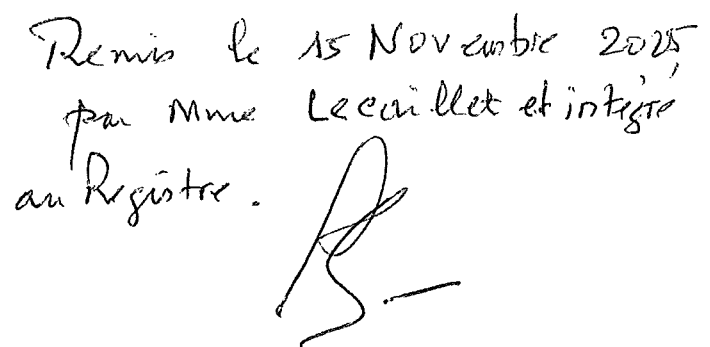 Remis le 15 Novembre 2025
par Mme Lecaillet et intégré
au Registre.